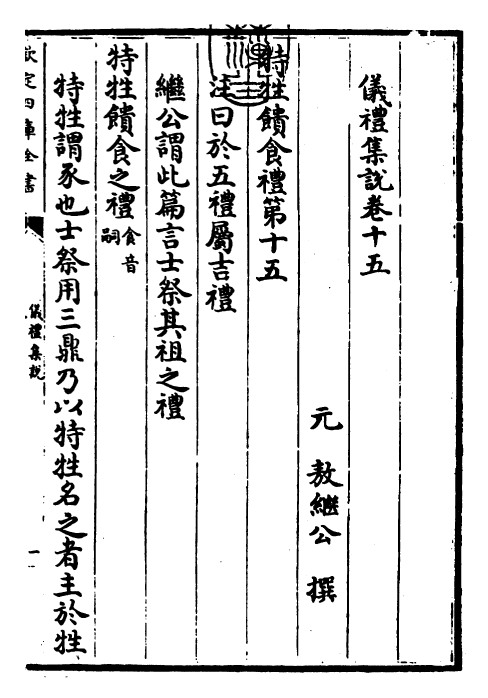 儀禮集說卷十五
元 敖繼公 撰
特牲饋食禮第十五
注曰於五禮屬吉禮
繼公謂此篇言士祭其祖之禮
特牲饋食之禮食音嗣
特牲謂豕也士祭用三鼎乃以特牲名之者主於牲
欽定四庫全書
儀禮集說
一